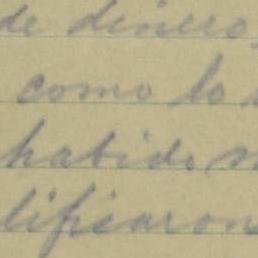 de dinero,
como lo
habido
lificaron